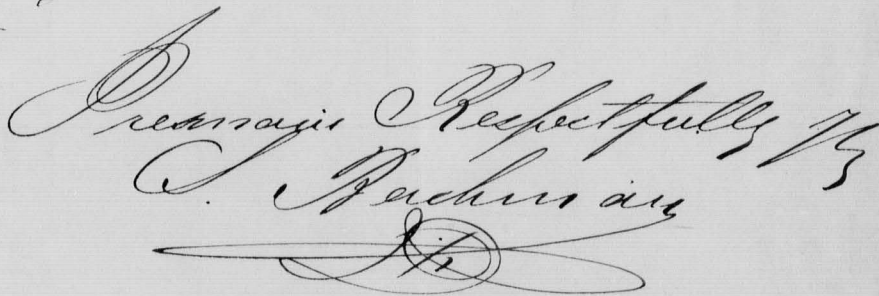 I remain Respectfully Yrs
S. Bachman